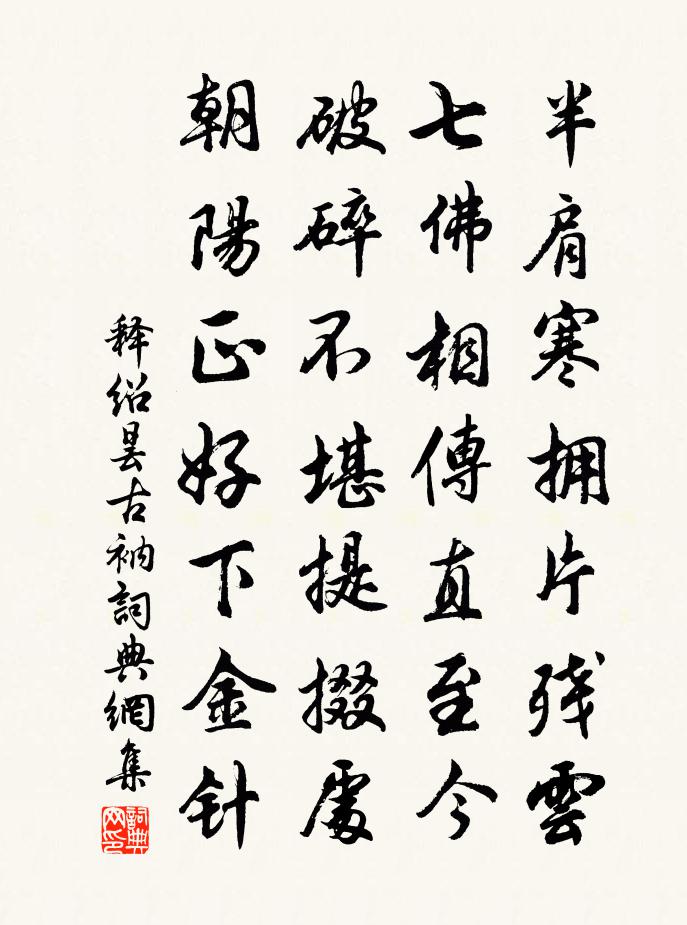 半肩寒拥片残雲
七佛相傳直至今
破碎不堪提掇處
朝陽正好下金针
释绍昙古衲詞典網集
詞典
网印